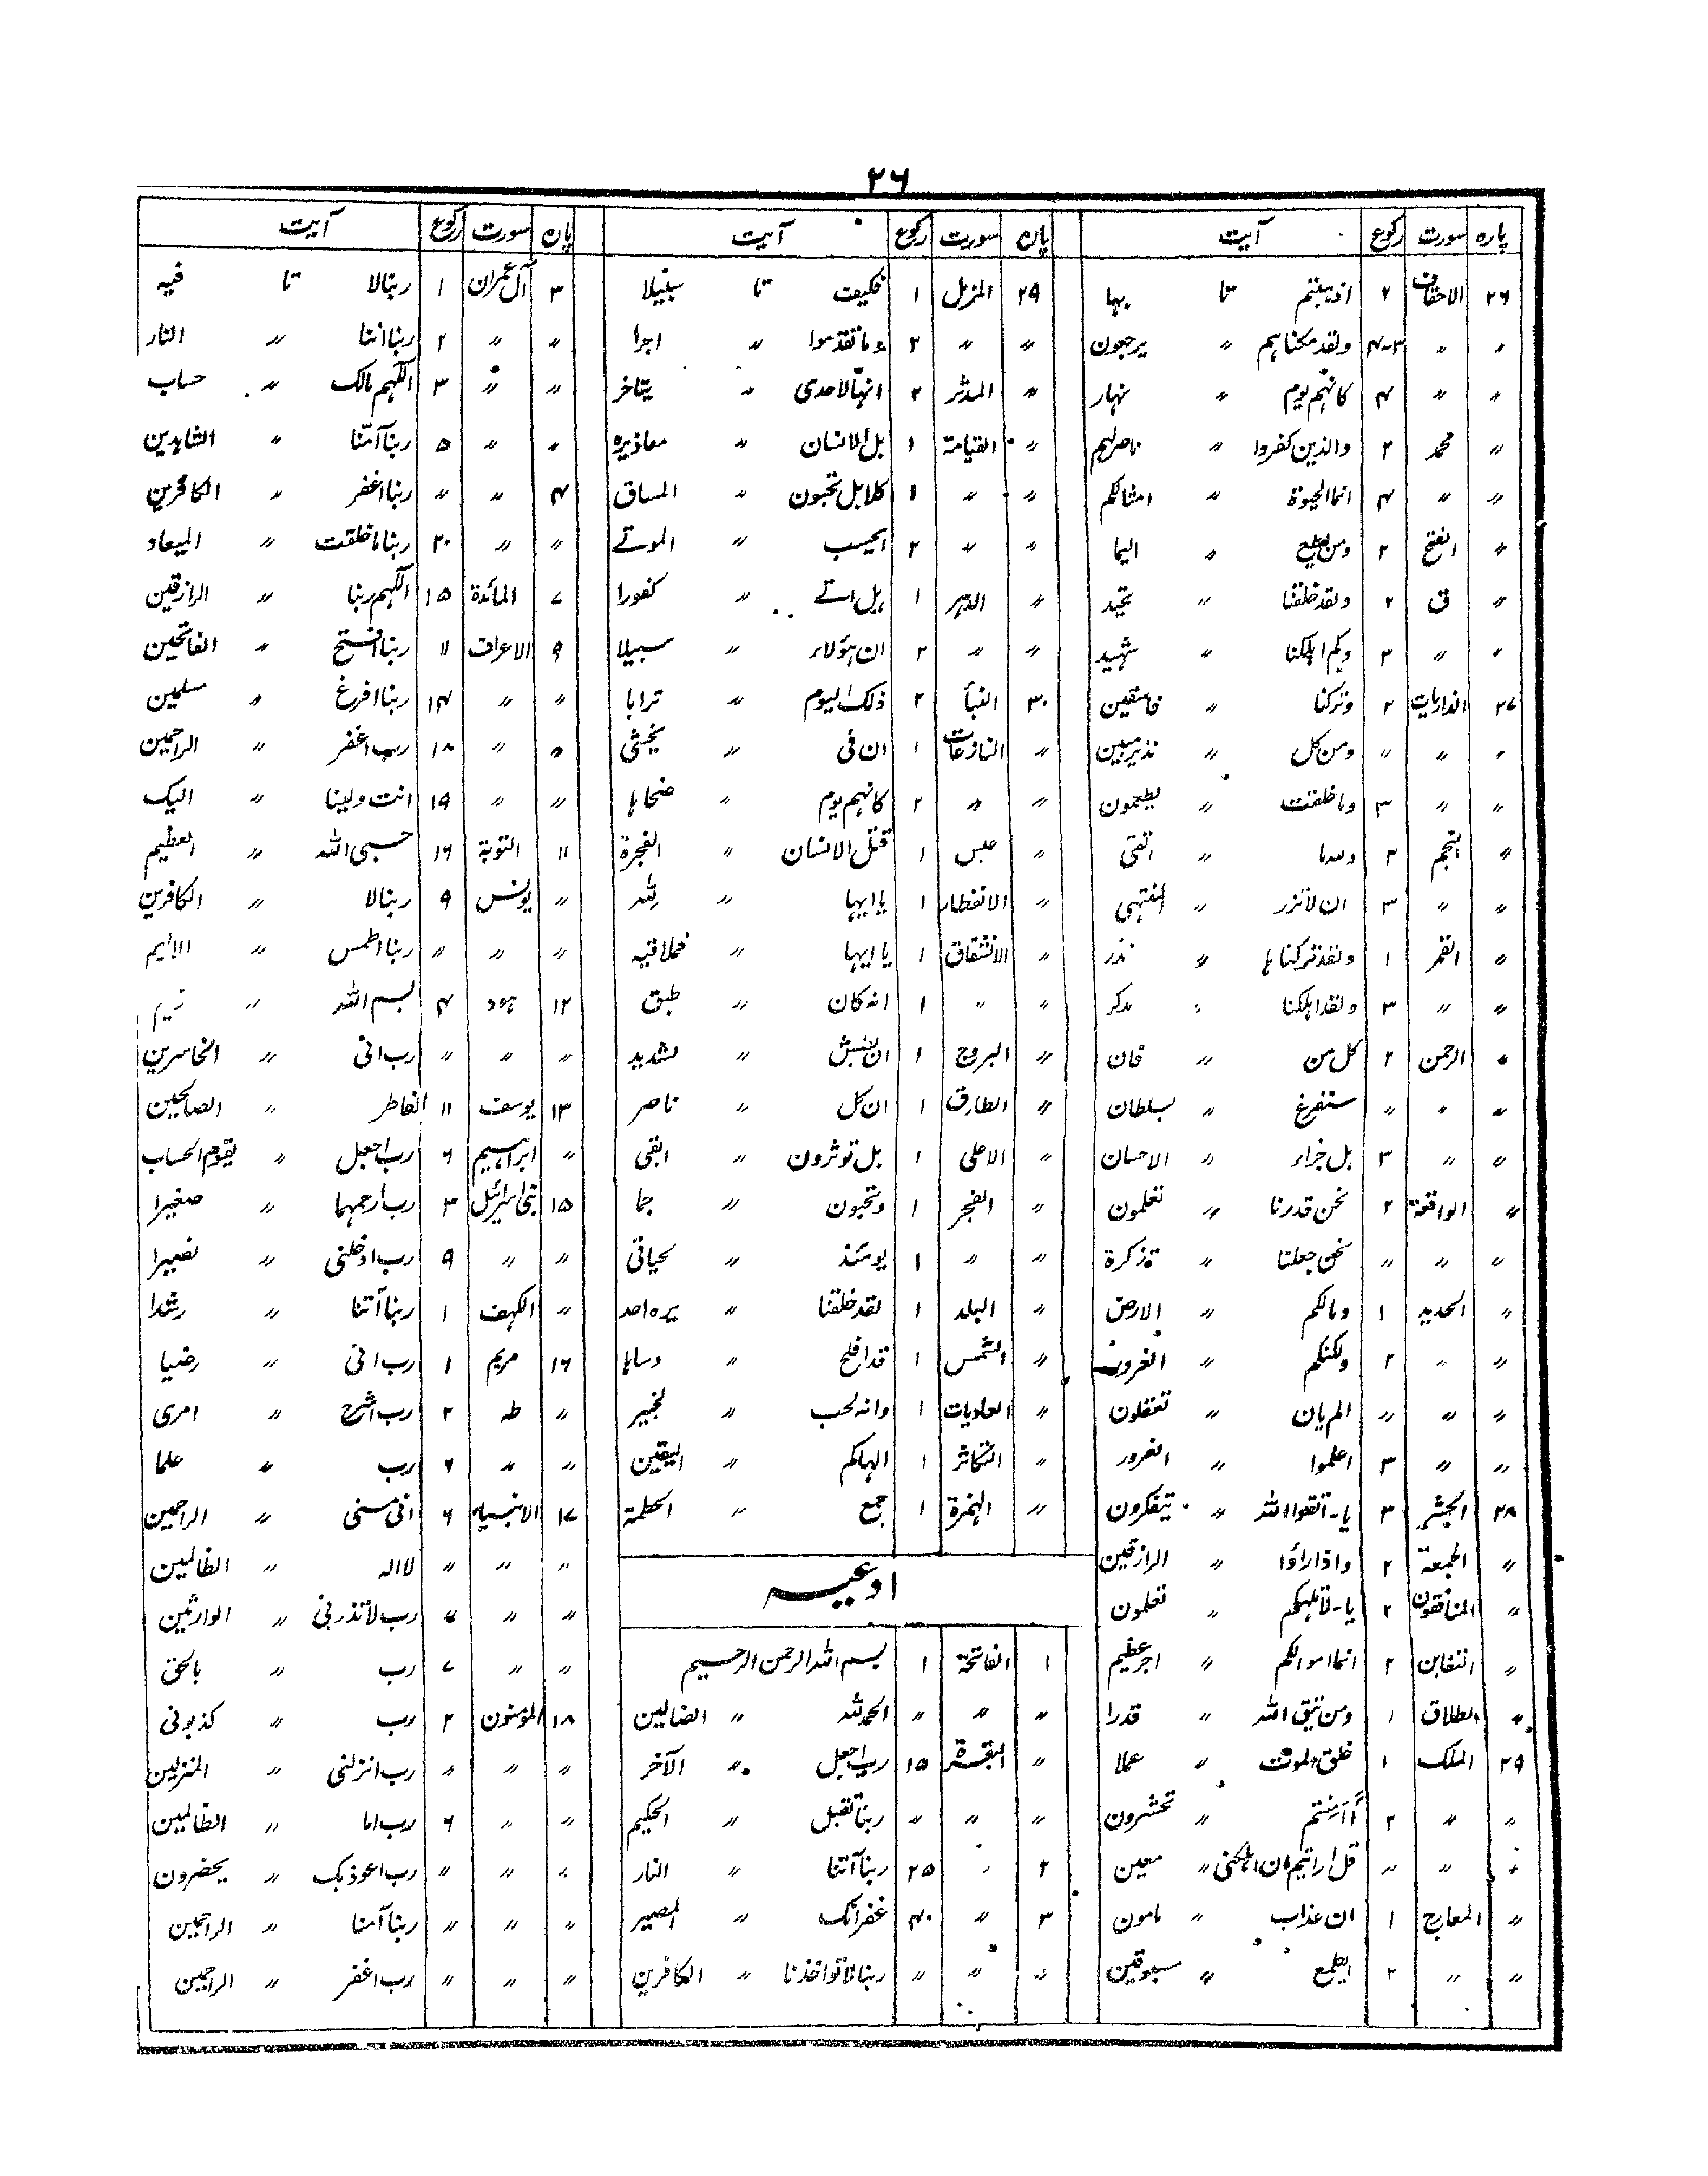 ۲۶
پارہ سورت رکوع آیت
۲۶ الاحقاف ۲ اذہبتم تا بہا
〃 〃 ۳-۴ ولقد مکناہم 〃 یرجعون
〃 〃 ۴ کانہم یوم 〃 نہار
〃 محمد ۲ والذین کفروا 〃 ناصرلہم
〃 〃 ۴ انما الحیوۃ 〃 امثالکم
〃 الفتح ۲ ومن یطع 〃 الیما
〃 ق ۲ ولقد خلقنا 〃 تحید
〃 〃 ۳ وکم اہلکنا 〃 شہید
۲۷ الذاریات ۲ وترکنا 〃 فاسقین
〃 〃 〃 ومن کل 〃 نذیر مبین
〃 〃 ۳ وما خلقت 〃 یطعمون
〃 النجم ۲ وللہ ما 〃 اتقی
〃 〃 ۳ ان لا تزر 〃 المنتہی
〃 القمر ۱ ولقد ترکناہا 〃 نذر
〃 〃 ۳ ولقد اہلکنا 〃 مدکر
〃 الرحمن ۲ کل من 〃 فان
〃 〃 〃 سنفرغ 〃 بسلطان
〃 〃 ۳ ہل جزاء 〃 الاحسان
〃 الواقعۃ ۲ نحن قدرنا 〃 تعلمون
〃 〃 〃 نحن جعلنا 〃 تذکرۃ
〃 الحدید ۱ ومالکم 〃 الارض
〃 〃 ۲ ولکنکم 〃 الغرور
〃 〃 〃 الم یان 〃 تعقلون
〃 〃 ۳ اعلموا 〃 الغرور
۲۸ الحشر ۳ یا - اتقوا اللہ 〃 یتفکرون
〃 الجمعۃ ۲ واذا راؤا 〃 الرازقین
〃 المنافقون ۲ یا - لا تلہکم 〃 تعلمون
〃 التغابن ۲ انما اموالکم 〃 اجر عظیم
〃 الطلاق ۱ ومن یتق اللہ 〃 قدرا
۲۹ الملک ۱ خلق الموت 〃 عملا
〃 〃 ۲ أامنتم 〃 تحشرون
〃 〃 〃 قل ارایتم ان اہلکنی 〃 معین
〃 المعارج ۱ ان عذاب 〃 مامون
〃 〃 ۲ ایطمع 〃 بمسبوقین
پارہ سورت رکوع آیت
۲۹ المزمل ۱ فکیف تا سبیلا
〃 〃 ۲ وما تقدموا 〃 اجرا
〃 المدثر ۲ انہا لاحدی 〃 یتاخر
〃 القیامۃ ۱ بل الانسان 〃 معاذیرہ
〃 〃 ۱ کلا بل تحبون 〃 المساق
〃 〃 ۲ ایحسب 〃 الموتے
〃 الدہر ۱ ہل اتے 〃 کفورا
〃 〃 ۲ ان ہؤلاء 〃 سبیلا
۳۰ النبأ ۲ ذلک الیوم 〃 ترابا
〃 النازعات ۱ ان فی 〃 یخشی
〃 〃 ۲ کانہم یوم 〃 ضحاہا
〃 عبس ۱ قتل الانسان 〃 الفجرۃ
〃 الانفطار ۱ یا ایہا 〃 للہ
〃 الانشقاق ۱ یا ایہا 〃 فملاقیہ
〃 〃 ۱ انہ کان 〃 طبق
〃 البروج ۱ ان بطش 〃 لشدید
〃 الطارق ۱ ان کل 〃 ناصر
〃 الاعلی ۱ بل توثرون 〃 ابقی
〃 الفجر ۱ وتحبون 〃 جما
〃 〃 ۱ یومئذ 〃 لحیاتی
〃 البلد ۱ لقد خلقنا 〃 یرہ احد
〃 الشمس ۱ قد افلح 〃 دساہا
〃 العادیات ۱ وانہ لحب 〃 لخبیر
〃 التکاثر ۱ الہاکم 〃 الیقین
〃 الہمزۃ ۱ جمع 〃 الحطمۃ
ادعیہ
۱ الفاتحۃ ۱ بسم اللہ الرحمن الرحیم
〃 〃 〃 الحمدللہ 〃 الضالین
〃 البقرۃ ۱۵ رب اجعل 〃 الآخر
〃 〃 〃 ربنا تقبل 〃 الحکیم
۲ 〃 ۲۵ ربنا آتنا 〃 النار
۳ 〃 ۴۰ غفرانک 〃 المصیر
〃 〃 〃 ربنا لا تواخذنا 〃 الکافرین
پارہ سورت رکوع آیت
۳ آل عمران ۱ ربنا لا تا فیہ
〃 〃 ۲ ربنا اننا 〃 النار
〃 〃 ۳ اللہم مالک 〃 حساب
〃 〃 ۵ ربنا آمنا 〃 الشاہدین
۴ 〃 〃 ربنا اغفر 〃 الکافرین
〃 〃 ۲۰ ربنا ما خلقت 〃 المیعاد
۷ المائدۃ ۱۵ اللہم ربنا 〃 الرازقین
۹ الاعراف ۱۱ ربنا افتح 〃 الفاتحین
〃 〃 ۱۴ ربنا افرغ 〃 مسلمین
〃 〃 ۱۸ رب اغفر 〃 الراحمین
〃 〃 ۱۹ انت ولینا 〃 الیک
۱۱ التوبۃ ۱۶ حسبی اللہ 〃 العظیم
〃 یونس ۹ ربنا لا 〃 الکافرین
〃 〃 〃 ربنا اطمس 〃 الالیم
۱۲ ہود ۴ بسم اللہ 〃
〃 〃 〃 رب انی 〃 الخاسرین
۱۳ یوسف ۱۱ الفاطر 〃 الصالحین
〃 ابراہیم ۶ رب اجعل 〃 یقوم الحساب
۱۵ بنی اسرائیل ۳ رب ارحمہما 〃 صغیرا
〃 〃 ۹ رب ادخلنی 〃 نصیرا
〃 الکہف ۱ ربنا آتنا 〃 رشدا
۱۶ مریم ۱ رب انی 〃 رضیا
〃 طہ ۲ رب اشرح 〃 امری
〃 〃 ۶ رب 〃 علما
۱۷ الانبیاء ۶ انی مسنی 〃 الراحمین
〃 〃 〃 لا الہ 〃 الظالمین
〃 〃 〃 رب لا تذرنی 〃 الوارثین
〃 〃 ۷ رب 〃 بالحق
۱۸ المؤمنون ۲ رب 〃 کذبونی
〃 〃 〃 رب انزلنی 〃 المنزلین
〃 〃 ۶ رب اما 〃 الظالمین
〃 〃 〃 رب اعوذبک 〃 یحضرون
〃 〃 〃 ربنا آمنا 〃 الراحمین
〃 〃 〃 رب اغفر 〃 الراحمین